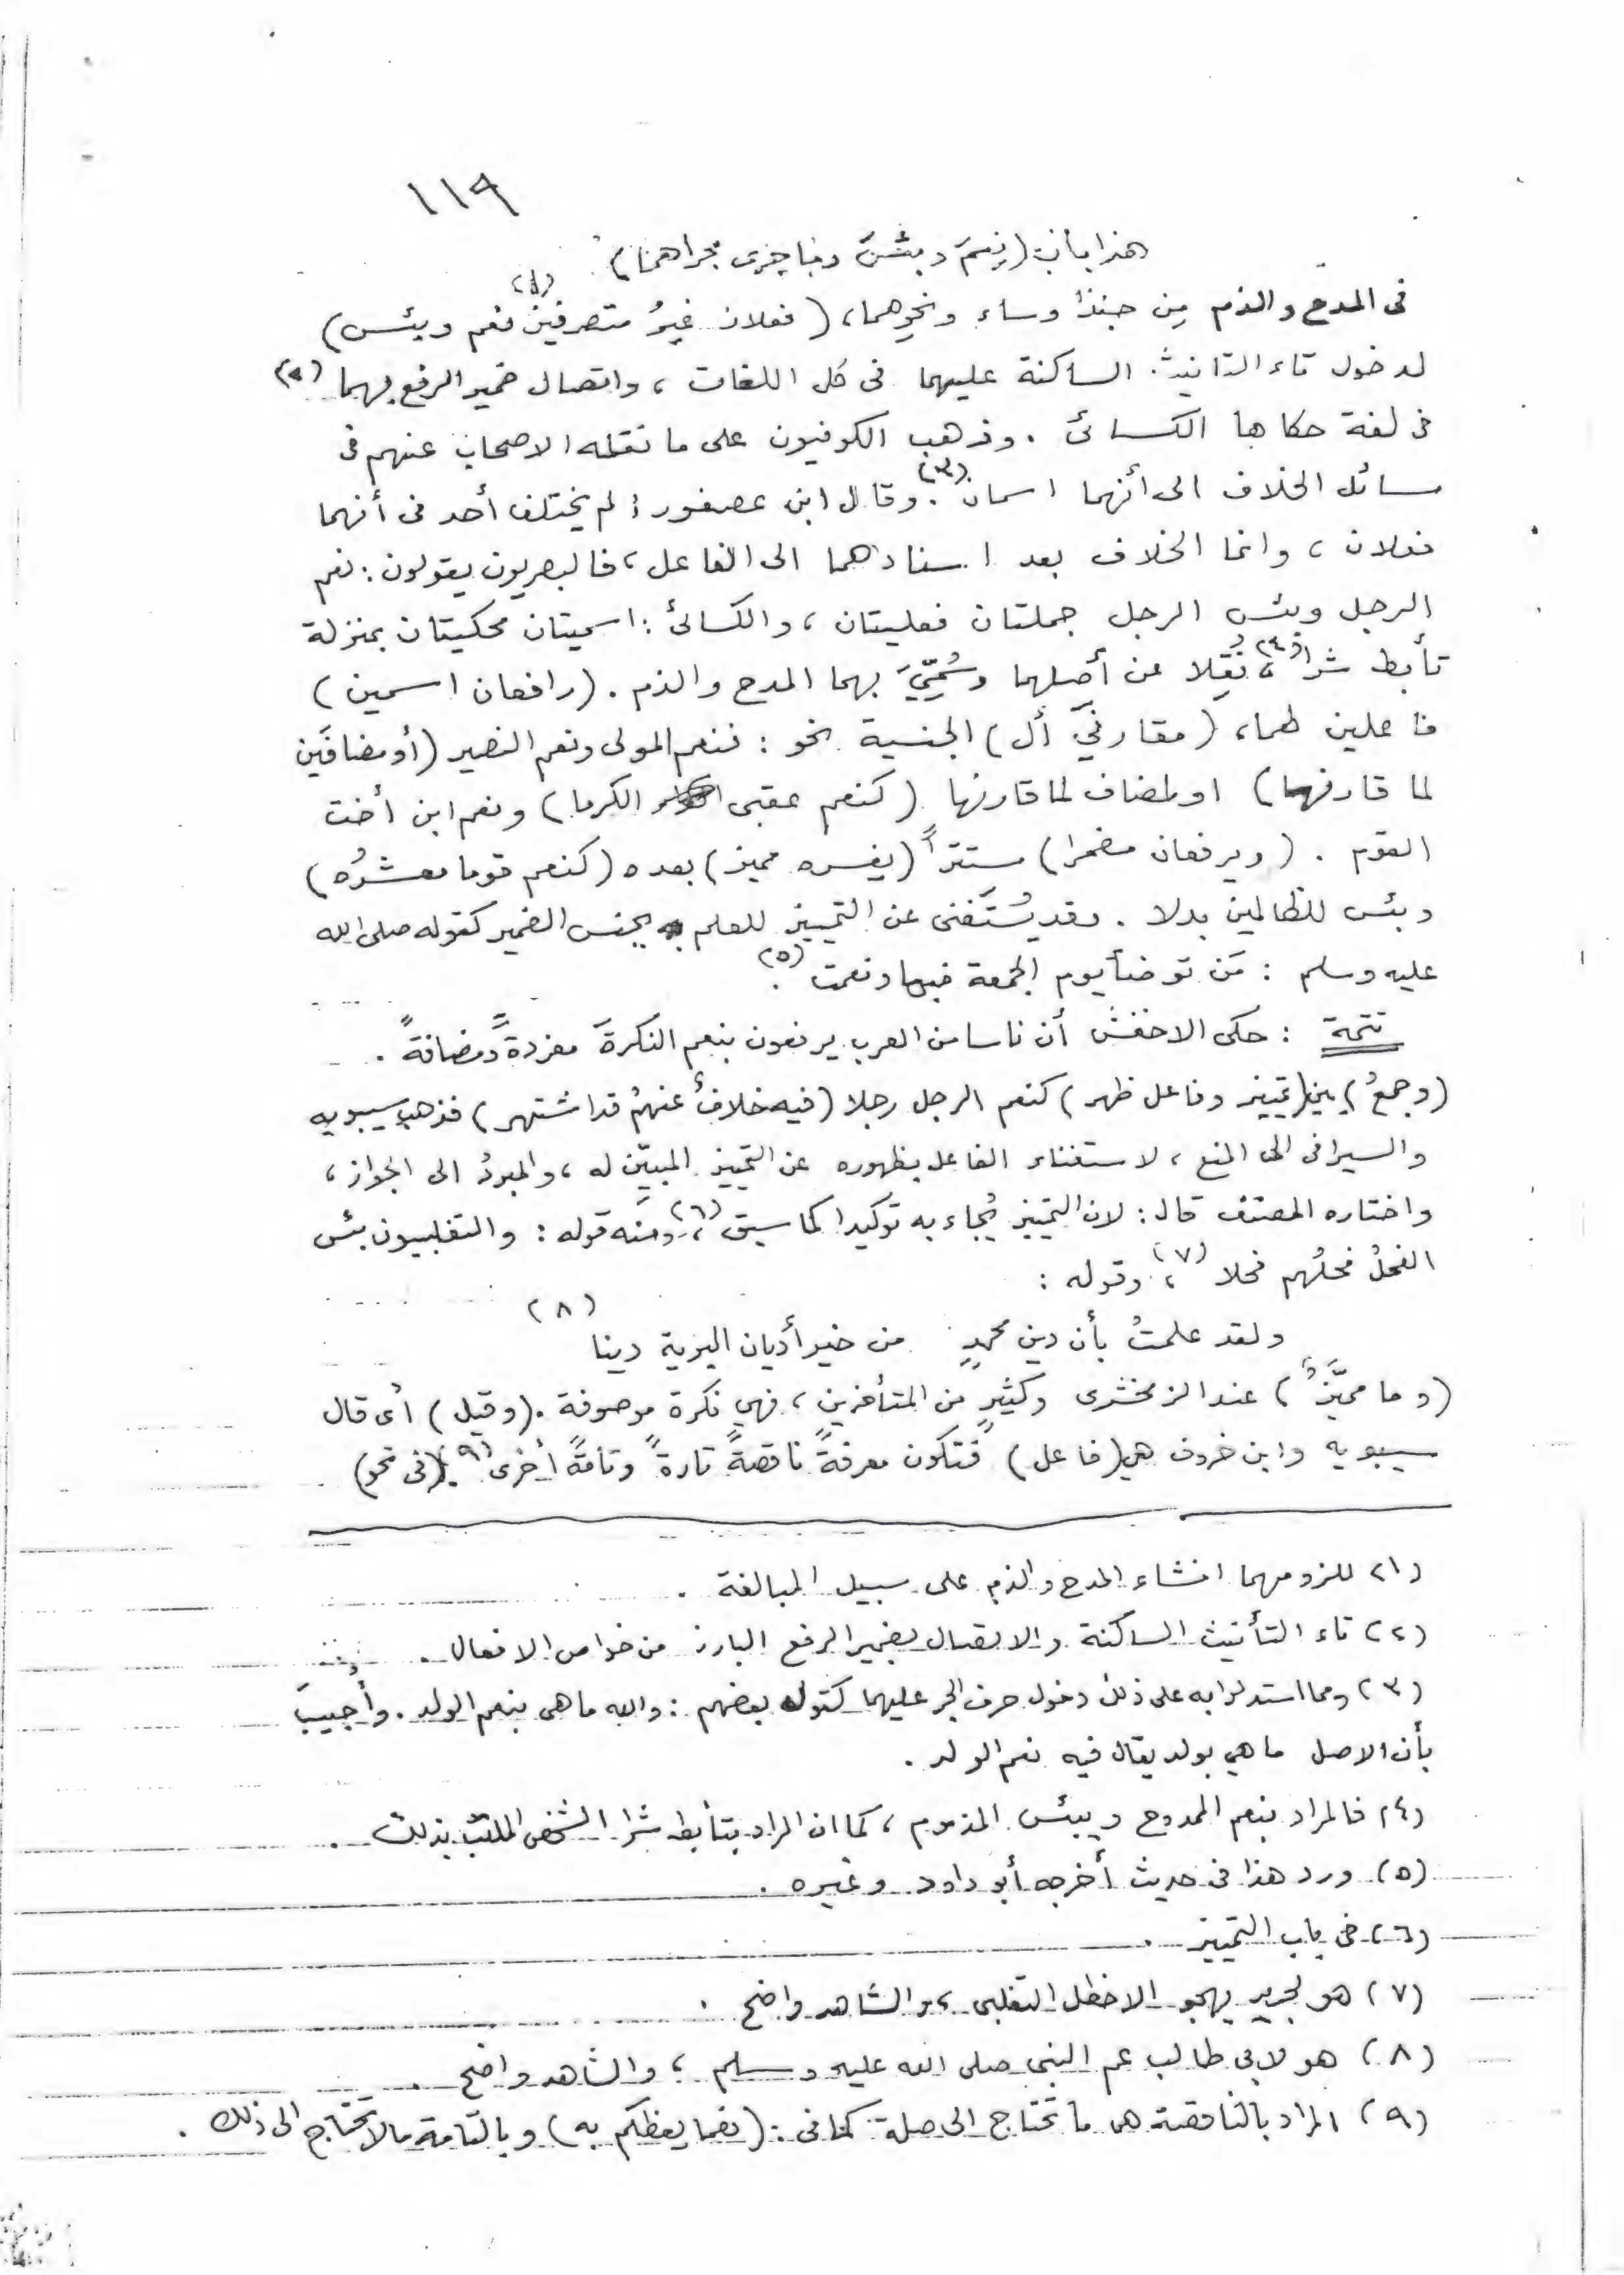 ١١٩
هذا باب (نِعمَ وبئسَ وما جرى مجراهما)
فى المدح والذم مِن حبذا وساء ونحوِهما، (فعلان غيرُ متصرفين(١) نعم وبئس)
لدخول تاء التانيث الساكنة عليهما فى كل اللغات ، واتصال ضمير الرفع بهما (٢)
فى لغة حكاها الكسائى . وذهب الكوفيون على ما نقله الاصحاب عنهم فى
مسائل الخلاف الى أنهما اسمان (٣) . وقال ابن عصفور : لم يختلف أحد فى أنهما
فعلان ، وانما الخلاف بعد اسنادهما الى الفاعل ، فالبصريون يقولون : نعم
الرجل وبئس الرجل جملتان فعليتان ، والكسائىُ : اسميتان محكيتان بمنزلة
تأبط شرا (٤) ، نُقِلا عن أصلهما وسُمِّيَ بهما المدح والذم . (رافعان اسمين)
فاعلين لهما، (مقارنَيْ أل) الجنسية نحو : فنعم المولى ونعم النصير (أو مضافَين
لما قارنها) او لمضاف لما قارنها (كنعم عقبى الكرما) ونعم ابن أخت
القوم . (ويرفعان مضمرا) مستترًا (يفسره مميز) بعده (كنعم قوما معشرُه)
وبئس للظالمين بدلا . وقد يُستَغنى عن التمييز للعلم بجنس الضمير كقوله صلى الله
عليه وسلم : مَن توضأ يوم الجمعة فبها ونعمت (٥) .
تتمة : حكى الاخفش أن ناسا من العرب يرفعون بنعم النكرةَ مفردةً ومضافةً .
(وجمعُ) بين (تمييز وفاعل ظهر) كنعم الرجل رجلا (فيه خلافٌ عنهمُ قد اشتهر) فذهب سيبويه
والسيرافى الى المنع ، لاستغناء الفاعل بظهوره عن التمييز المبيّن له ، والمبردُ الى الجواز ،
واختاره المصنف قال : لان التمييز يُجاء به توكيدا كما سبق (٦) ، ومنه قوله : والتغلبيون بئس
الفحلُ فحلُهم فحلا (٧) ، وقوله :
ولقد علمتُ بأن دين محمدٍ من خير أديان البرية دينا (٨)
(وما مميَّزٌ) عند الزمخشرى وكثيرٍ من المتأخرين ، فهي نكرة موصوفة . (وقيل) أى قال
سيبويه وابن خروف هي (فاعل) فتكون معرفةً ناقصةً تارةً وتامةً أخرى (٩) . (فى نحو)
(١) للزومهما انشاء المدح والذم على سبيل المبالغة .
(٢) تاء التأنيث الساكنة والاتصال بضمير الرفع البارز من خواص الافعال .
(٣) ومما استدلوا به على ذلك دخول حرف الجر عليهما كقول بعضهم : والله ما هى بنعم الولد . وأُجيبَ
بأن الاصل ما هي بولد يقال فيه نعم الولد .
(٤) فالمراد بنعم الممدوح وببئس المذموم ، كما ان المراد بتأبط شرا الشخص الملقب بذلك .
(٥) ورد هذا فى حديث أخرجه أبو داود وغيره .
(٦) فى باب التمييز .
(٧) هو لجرير يهجو الاخطل التغلبى ، والشاهد واضح .
(٨) هو لابى طالب عم النبى صلى الله عليه وسلم ، والشاهد واضح .
(٩) المراد بالناقصة هى ما تحتاج الى صلة كما فى : (نعما يعظكم به) وبالتامة ما لا تحتاج الى ذلك .